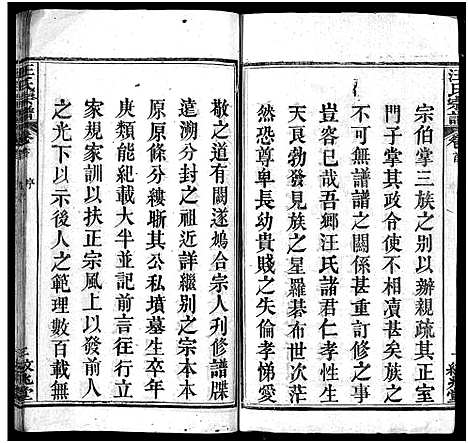 汪氏宗譜
卷首
宗伯掌三族之别以辦親疏其正室
門子掌其政令使不相凟甚矣族之
不可無譜譜之關係甚重訂修之事
豈容已哉吾鄉汪氏諸君仁孝性生
天良勃發見族之星羅碁布世次茫
然恐尊卑長幼貴賤之失倫孝悌愛
敬之道有闕遂鳩合宗人刋修譜牒
遠溯分封之祖近詳繼别之宗本本
原原條分縷晰其公私墳墓生卒年
庚類能紀載大半並記前言徃行立
家規家訓以扶正宗風上以發前人
之光下以示後人之範理數百載無
汪氏宗譜
卷首
序